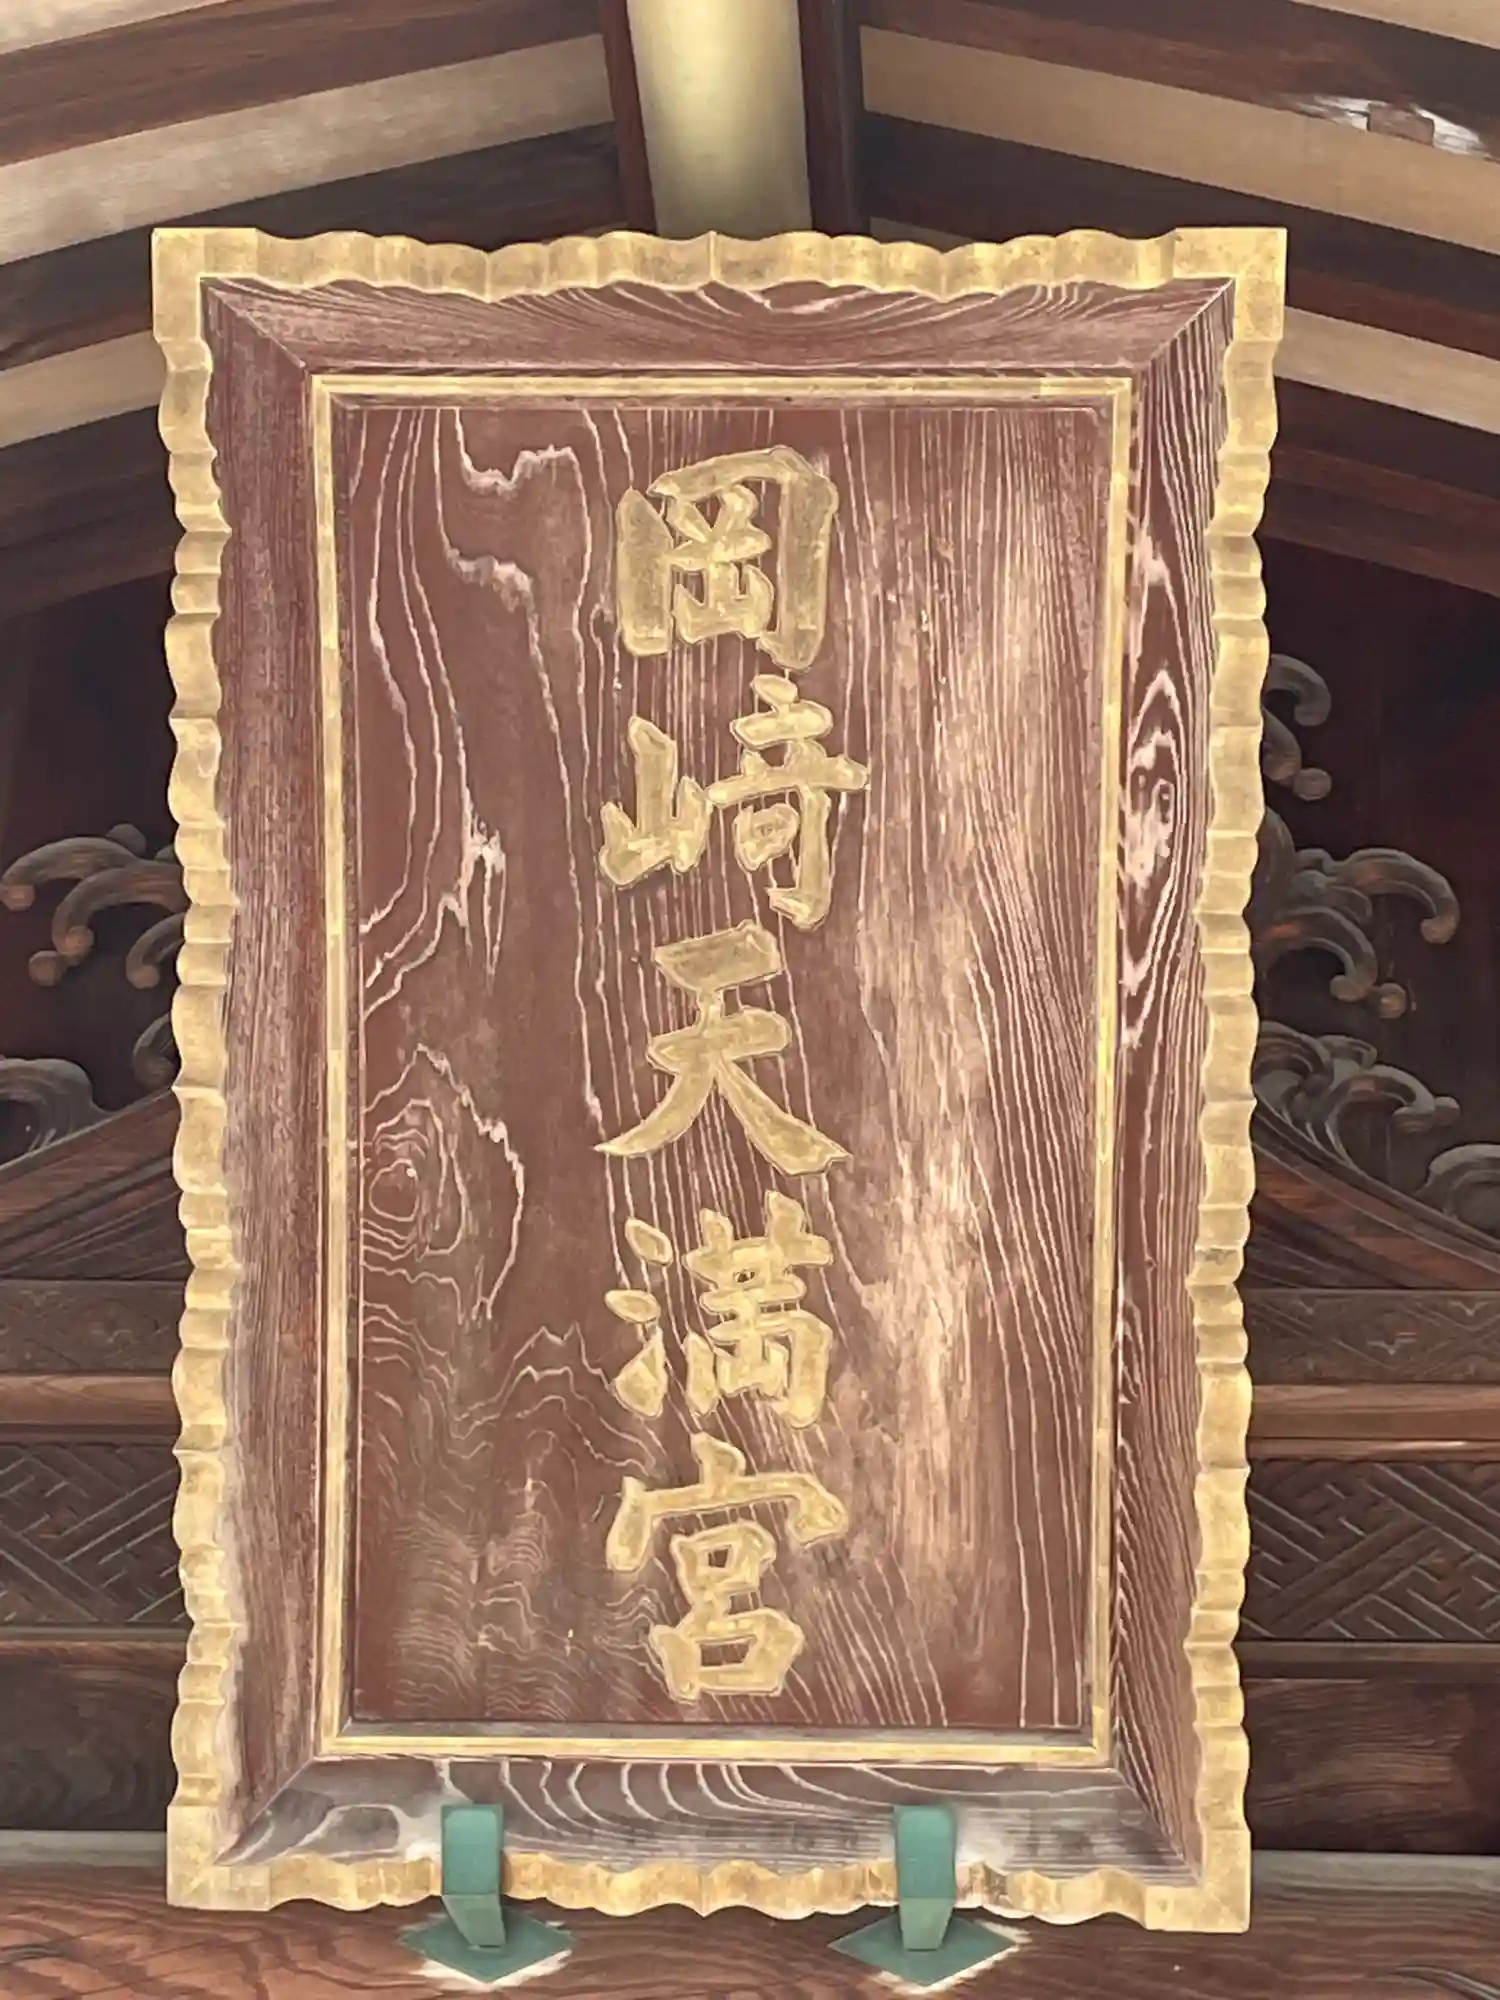 岡﨑天満宮